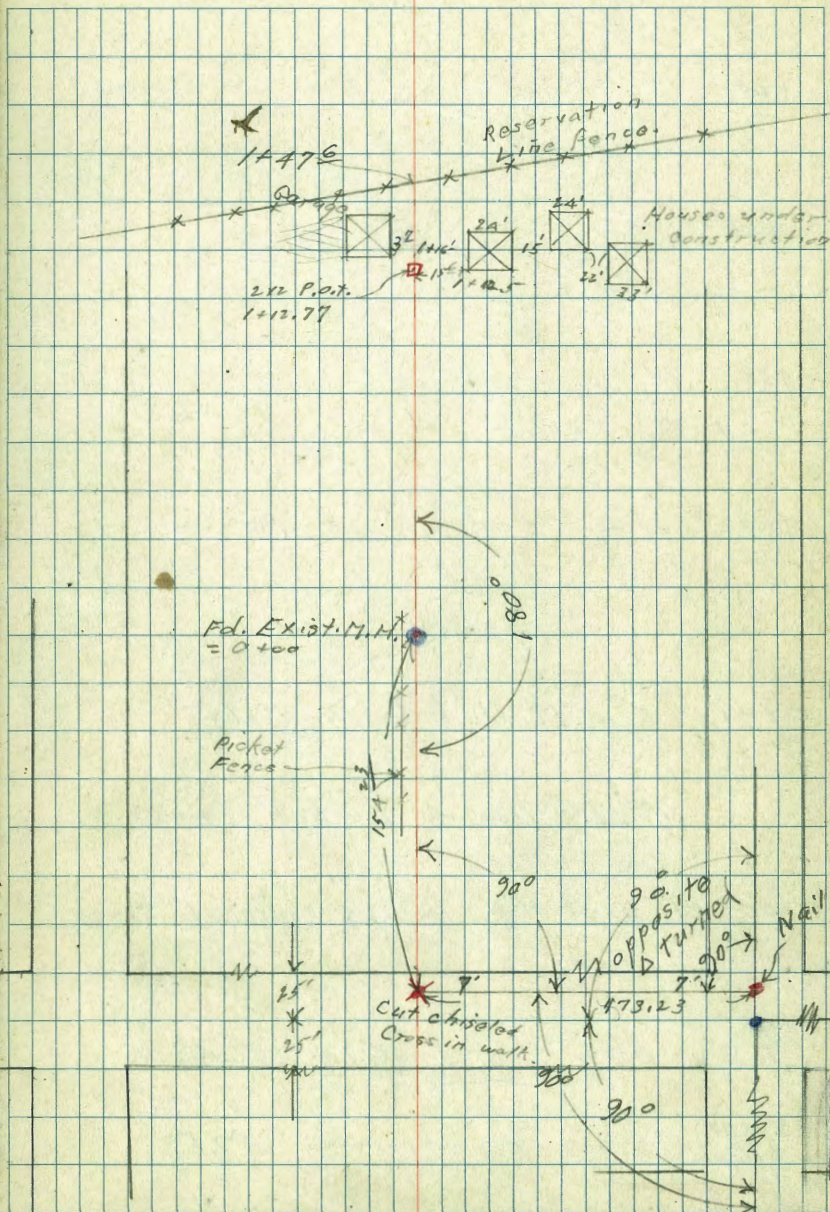 Reservation
Line fence.
1+47 6
Garage
24'
24'
Houses under
Construction
3 2
1+16'
15'
15
1+12.5
22'
23'
2x2 P.O.T.
1+12.77
180°
Fd. Exist. M.H.
= 0+00
Picket
Fence
90°
90°
opposite
turned
90°
Nail
7'
7'
473.23
25'
25'
Cut chiseled
Cross in walk.
90°
90°